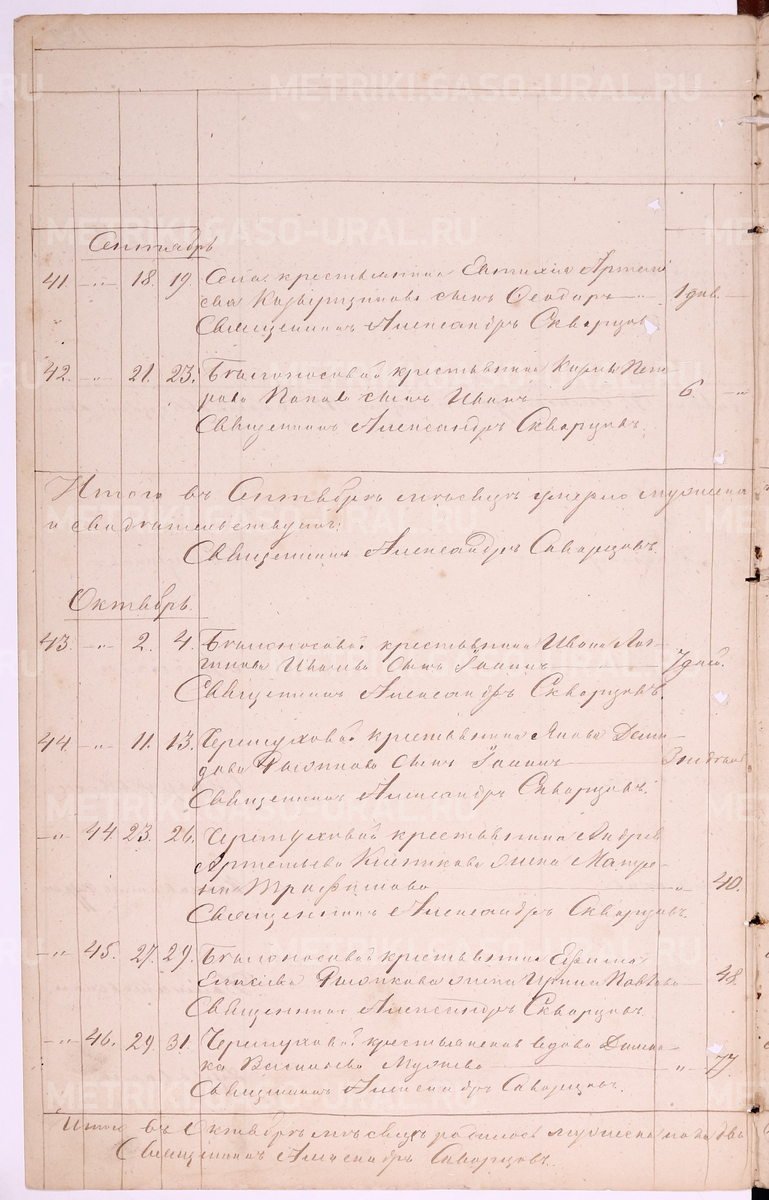 METRIKI.GASO-URAL.RU
Сентябрь
41. -„- 18. 19. Села крестьянина Евтихія Артемі-
ева сынъ Ѳеодоръ 1 дня.
Священникъ Александръ Скварцовъ.
42. -„- 21. 23. Бѣлоносовой крестьянина Карпа Пет-
рова Попова сынъ Иванъ 6. -„-
Священникъ Александръ Скварцовъ.
Итого въ Сентябрѣ мѣсяцѣ умерло мужеска
Священникъ Александръ Скварцовъ.
Октябрь.
43. -„- 2. 4. Бѣлоносовой крестьянина Ивана Лог-
гинова сынъ Іоаннъ 7 дней.
Священникъ Александръ Скварцовъ.
44. -„- 11. 13. Черемуховой крестьянина Якова Деми-
дова сынъ Іоаннъ
Священникъ Александръ Скварцовъ.
-„- 44. 23. 26. Черемуховой крестьянина Андрея
Артемьева жена Матре-
на Трофимова -„- 40.
Священникъ Александръ Скварцовъ.
-„- 45. 27. 29. Бѣлоносовой крестьянина Ефима
Елисѣева жена Ирина Павлова 48.
Священникъ Александръ Скварцовъ.
-„- 46. 29. 31. Черемуховой крестьянская вдова Домни-
ка Васильева -„- 77.
Священникъ Александръ Скварцовъ.
Итого въ Октябрѣ мѣсяцѣ родилось мужеска пола два
Священникъ Александръ Скварцовъ.